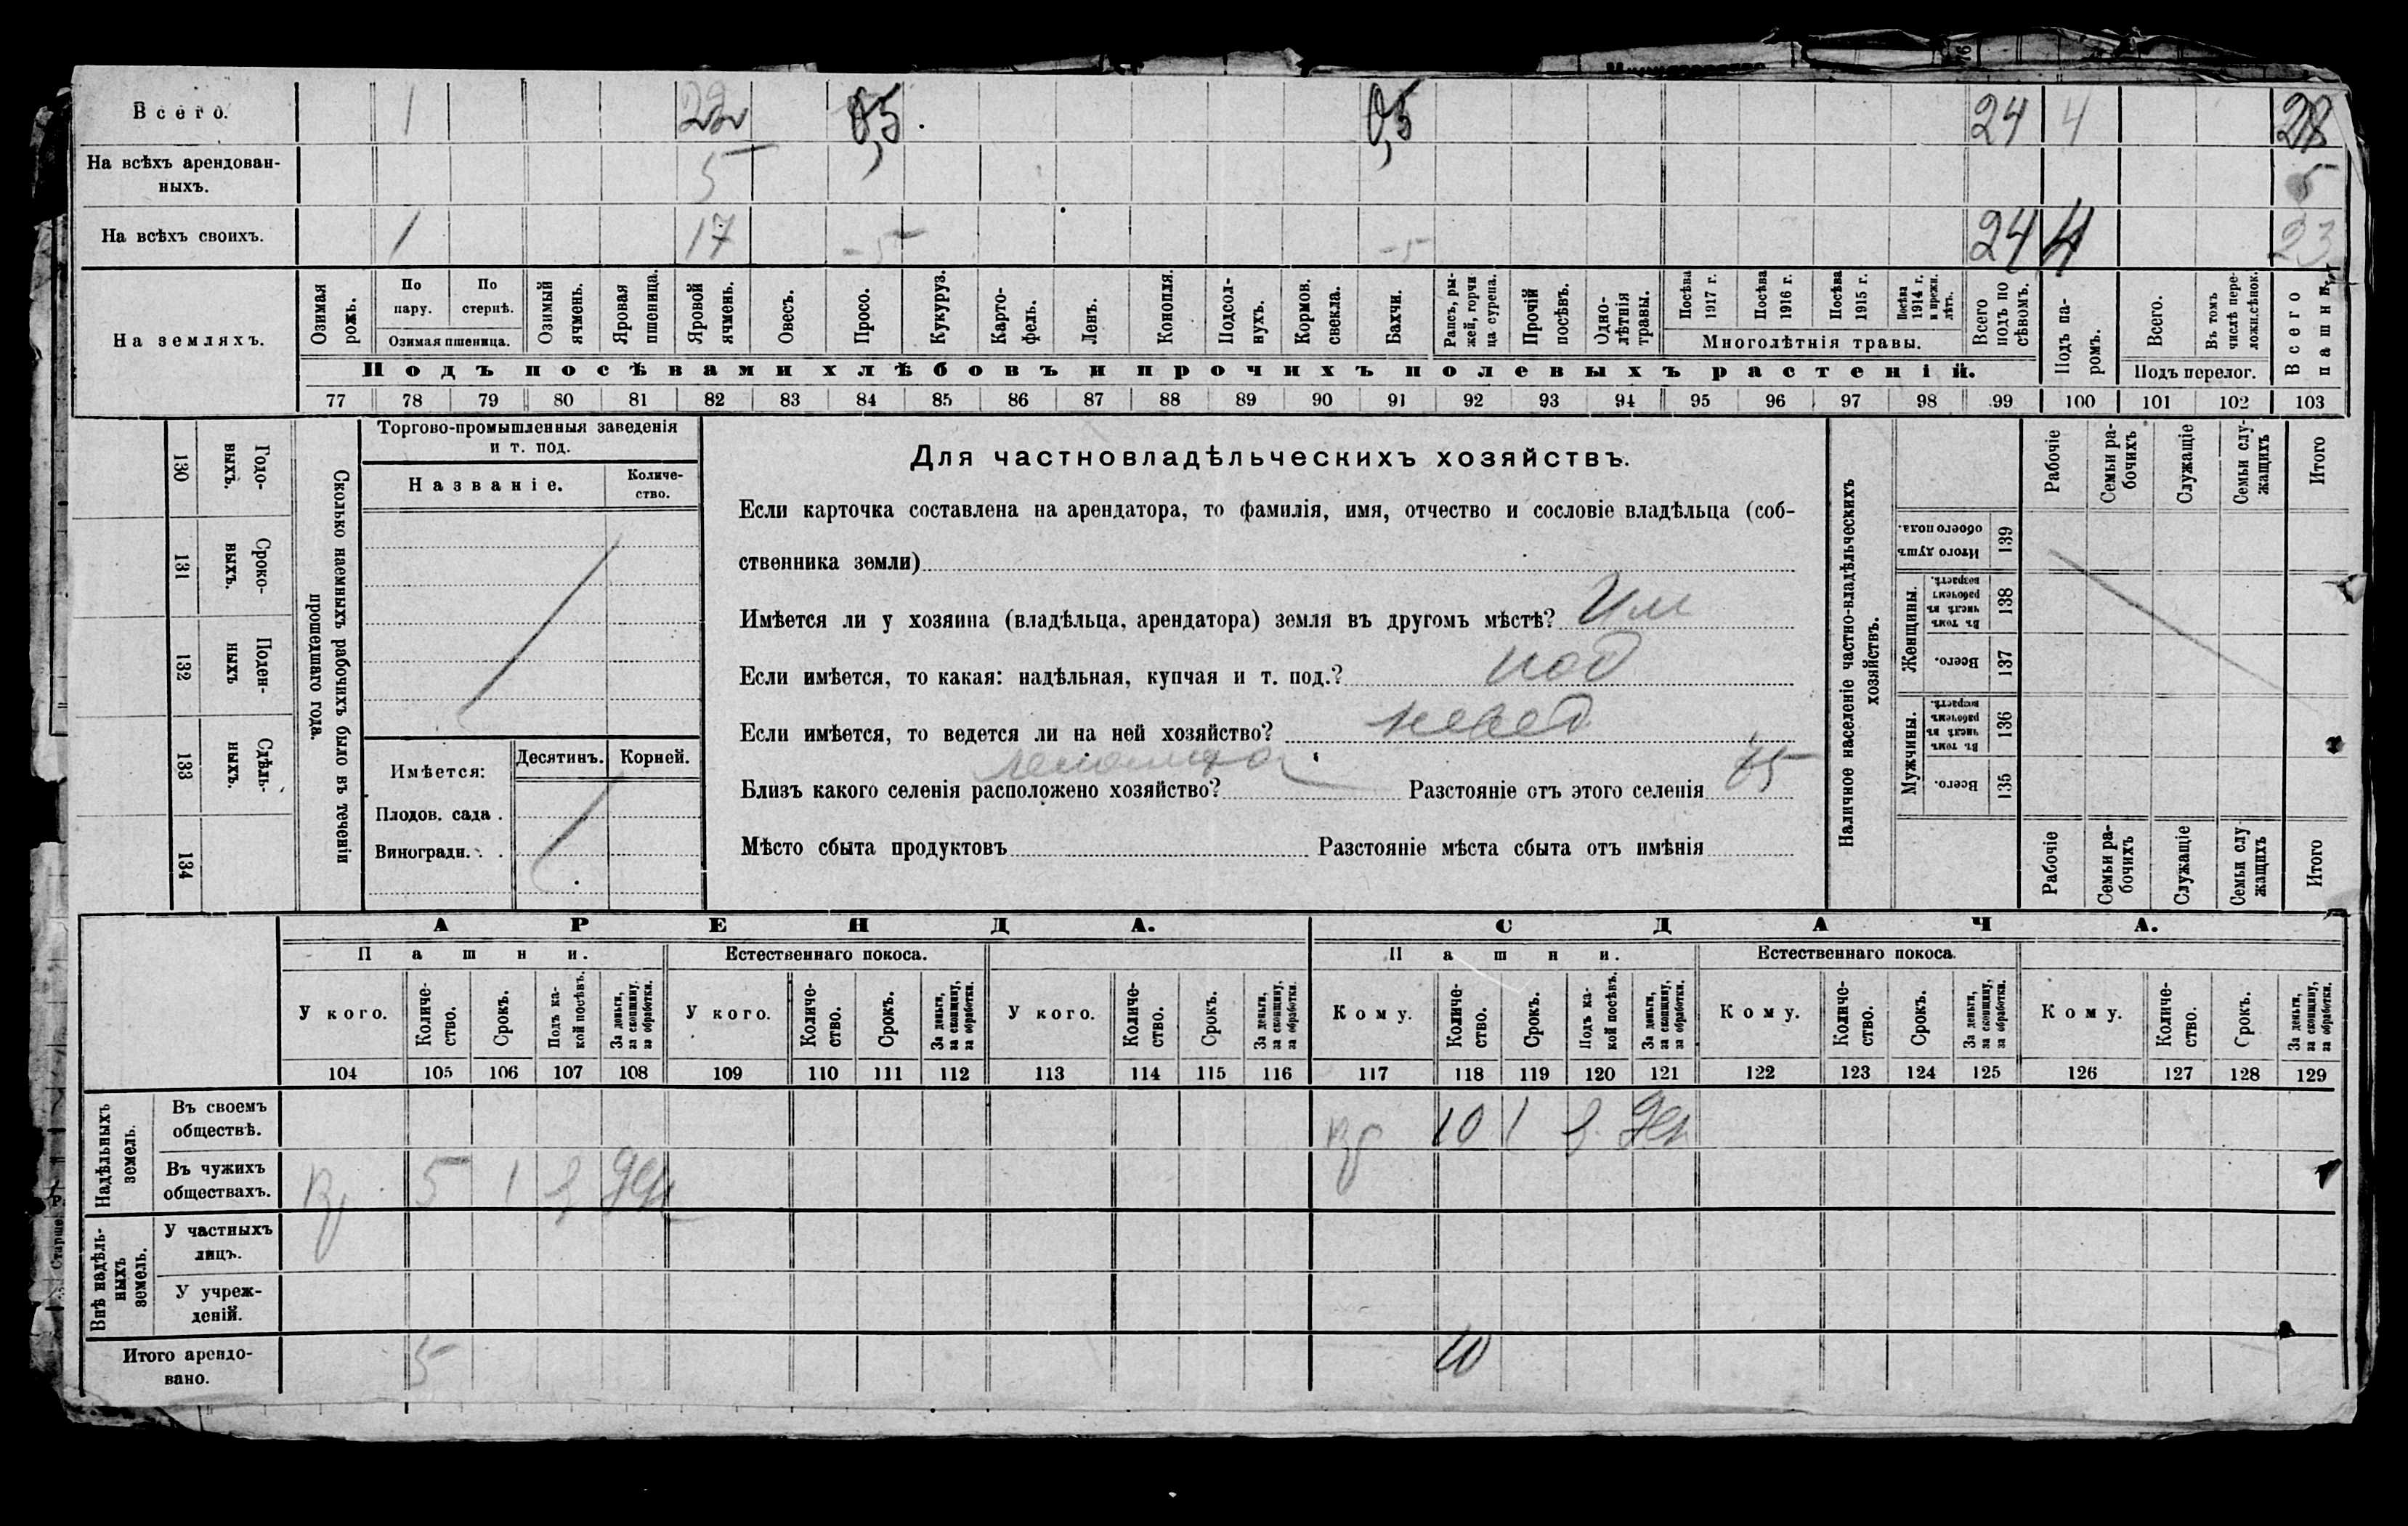 Всего. 1 22 0,5 0,5 24 4 28
На всѣхъ арендован-
ныхъ. 5 5
На всѣхъ своихъ. 1 17 -5 -5 24 4 23
На земляхъ.
Озимая рожь.
По пару.
По стернѣ.
Озимая пшеница.
Озимый ячмень.
Яровая пшеница.
Яровой ячмень.
Овесъ.
Просо.
Кукуруз.
Карто-
фель.
Ленъ.
Конопля.
Подсол-
нухъ.
Кормов.
свекла.
Бахчи.
Рапсъ, ры-
жей, горчи
ца сурепа.
Прочій
посѣвъ.
Одно-
лѣтнія
травы.
Посѣва
1917 г.
Посѣва
1916 г.
Посѣва
1915 г.
Посѣва
1914 г.
и прежн.
лѣтъ.
Многолѣтнія травы.
Всего
подъ по
сѣвомъ.
Подъ па-
ромъ.
Всего.
Въ томъ
числѣ пере-
ложн.сѣнок.
Подъ перелог.
Всего
пашни.
Подъ посѣвами хлѣбовъ и прочихъ полевыхъ растеній.
77 78 79 80 81 82 83 84 85 86 87 88 89 90 91 92 93 94 95 96 97 98 99 100 101 102 103
Сколько наемныхъ рабочихъ было въ теченіи
прошедшаго года.
Годо-
выхъ.
130
Сроко-
выхъ.
131
Поден-
ныхъ
132
Сдѣль-
ныхъ.
133
134
Торгово-промышленныя заведенія
и т. под.
Названіе.
Количе-
ство.
Имѣется:
Десятинъ. Корней.
Плодов. сада .
Виноградн. . .
Для частновладѣльческихъ хозяйствъ.
Если карточка составлена на арендатора, то фамилія, имя, отчество и сословіе владѣльца (соб-
ственника земли)
Имѣется ли у хозяина (владѣльца, арендатора) земля въ другомъ мѣстѣ? Им
Если имѣется, то какая: надѣльная, купчая и т. под.?
Если имѣется, то ведется ли на ней хозяйство?
Близъ какого селенія расположено хозяйство? Разстояніе отъ этого селенія
Мѣсто сбыта продуктовъ Разстояніе мѣста сбыта отъ имѣнія
Наличное населеніе частно-владѣльческихъ
хозяйствъ.
Итого душъ
обоего пола.
139
Женщины.
Въ томъ
числѣ въ
рабочемъ
возрастѣ.
138
Всего.
137
Мужчины.
Въ томъ
числѣ въ
рабочемъ
возрастѣ.
136
Всего.
135
Рабочіе
Семьи ра-
бочихъ
Служащіе
Семьи слу-
жащихъ
Итого
Рабочіе
Семьи ра-
бочихъ
Служащіе
Семьи слу
жащихъ
Итого
АРЕНДА. СДАЧА.
Пашни. Естественнаго покоса. Пашни. Естественнаго покоса.
У кого.
Количе-
ство.
Срокъ.
Подъ ка-
кой посѣвъ.
За деньги,
за скопщину,
за обработки.
У кого.
Количе-
ство.
Срокъ.
За деньги,
за скопщину,
за обработки.
У кого.
Количе-
ство.
Срокъ.
За деньги,
за скопщину,
за обработки.
Кому.
Количе-
ство.
Срокъ.
Подъ ка-
кой посѣвъ.
За деньги,
за скопщину,
за обработки.
Кому.
Количе-
ство.
Срокъ.
За деньги,
за скопщину,
за обработки.
Кому.
Количе-
ство.
Срокъ.
За деньги,
за скопщину,
за обработки.
104 105 106 107 108 109 110 111 112 113 114 115 116 117 118 119 120 121 122 123 124 125 126 127 128 129
Надѣльныхъ
земель.
Въ своемъ
обществѣ. 10 1 ден
Въ чужихъ
обществахъ. 5 1 ден
Внѣ надѣль-
ныхъ
земель.
У частныхъ
лицъ.
У учреж-
деній.
Итого арендо-
вано. 5 10